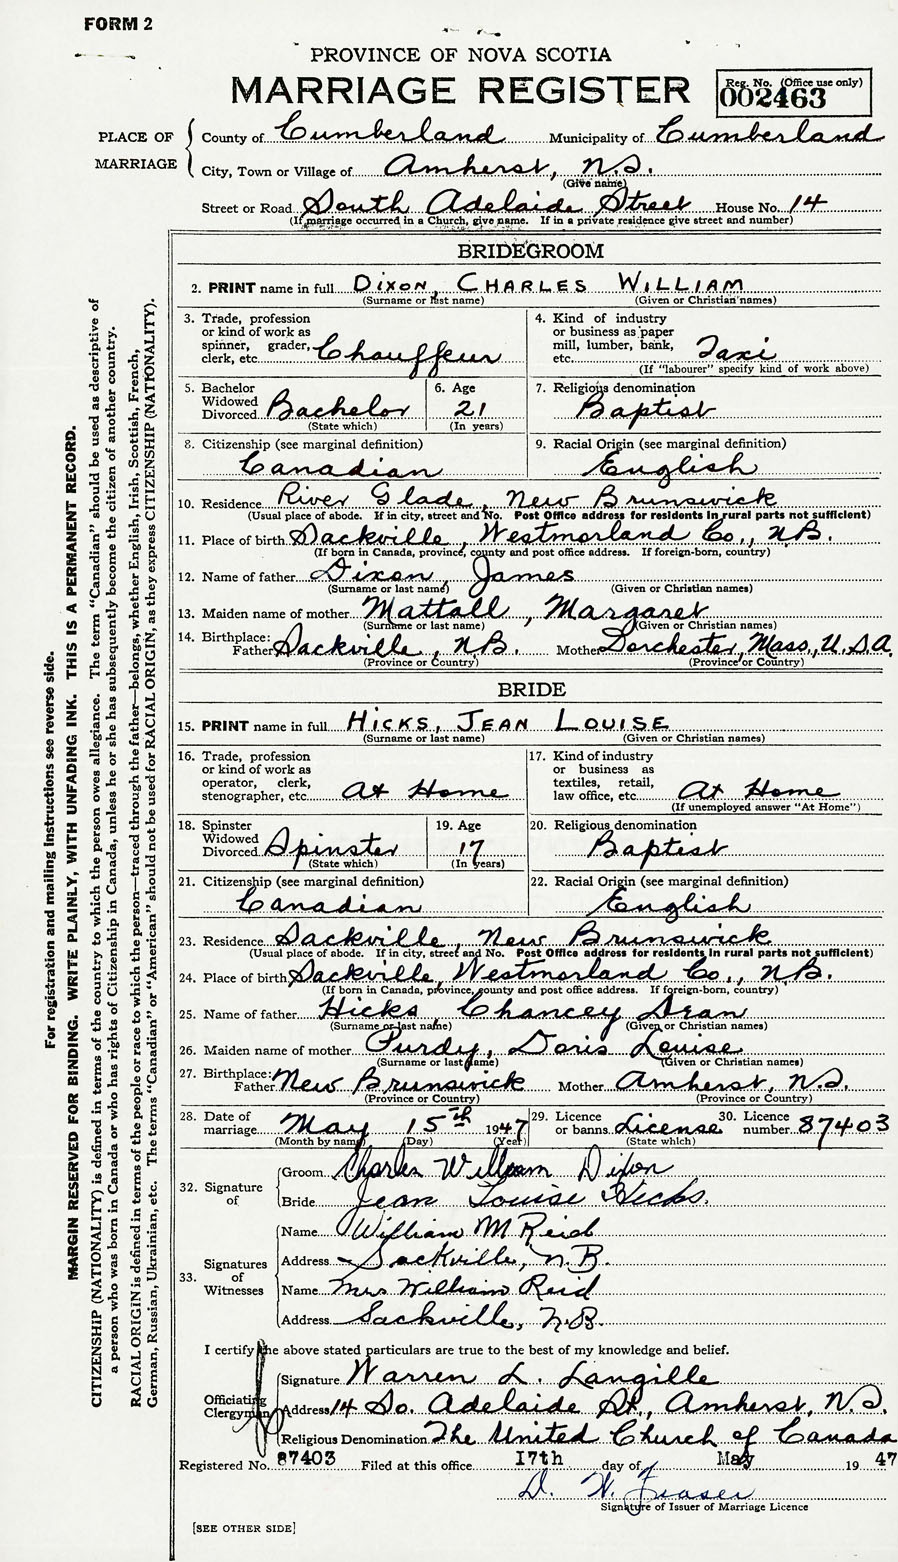 FORM 2
PROVINCE OF NOVA SCOTIA
MARRIAGE REGISTER
Reg. No. (Office use only)
002463
PLACE OF MARRIAGE
County of Cumberland Municipality of Cumberland
City, Town or Village of Amherst, N.S.
(Give name)
Street or Road South Adelaide Street House No. 14
(If marriage occurred in a Church, give name. If in a private residence give street and number)
BRIDEGROOM
2. PRINT name in full DIXON, CHARLES WILLIAM
(Surname or last name) (Given or Christian names)
3. Trade, profession
or kind of work as
spinner, grader,
clerk, etc. Chauffeur
4. Kind of industry
or business as paper
mill, lumber, bank,
etc. Taxi
(If "labourer" specify kind of work above)
5. Bachelor
Widowed
Divorced Bachelor
(State which)
6. Age
21
(In years)
7. Religious denomination
Baptist
8. Citizenship (see marginal definition)
Canadian
9. Racial Origin (see marginal definition)
English
10. Residence River Glade, New Brunswick
(Usual place of abode. If in city, street and No. Post Office address for residents in rural parts not sufficient)
11. Place of birth Sackville, Westmorland Co., N.B.
(If born in Canada, province, county and post office address. If foreign-born, country)
12. Name of father Dixon, James
(Surname or last name) (Given or Christian names)
13. Maiden name of mother Mattall, Margaret
(Surname or last name) (Given or Christian names)
14. Birthplace:
Father Sackville, N.B. Mother Dorchester, Mass., U.S.A.
(Province or Country) (Province or Country)
BRIDE
15. PRINT name in full HICKS, JEAN LOUISE
(Surname or last name) (Given or Christian names)
16. Trade, profession
or kind of work as
operator, clerk,
stenographer, etc. At Home
17. Kind of industry
or business as
textiles, retail,
law office, etc. At Home
(If unemployed answer "At Home")
18. Spinster
Widowed
Divorced Spinster
(State which)
19. Age
17
(In years)
20. Religious denomination
Baptist
21. Citizenship (see marginal definition)
Canadian
22. Racial Origin (see marginal definition)
English
23. Residence Sackville, New Brunswick
(Usual place of abode. If in city, street and No. Post Office address for residents in rural parts not sufficient)
24. Place of birth Sackville, Westmorland Co., N.B.
(If born in Canada, province, county and post office address. If foreign-born, country)
25. Name of father Hicks, Chancey Dean
(Surname or last name) (Given or Christian names)
26. Maiden name of mother Purdy, Doris Louise
(Surname or last name) (Given or Christian names)
27. Birthplace:
Father New Brunswick Mother Amherst, N.S.
(Province or Country) (Province or Country)
28. Date of
marriage May 15th 1947
(Month by name) (Day) (Year)
29. Licence
or banns License
(State which)
30. Licence
number 87403
32. Signature
of
Groom Charles William Dixon
Bride Jean Louise Hicks.
33. Signatures
of
Witnesses
Name William M Reid
Address Sackville, N.B.
Name Mrs William Reid
Address Sackville, N.B.
I certify the above stated particulars are true to the best of my knowledge and belief.
Officiating
Clergyman
Signature Warren L. Langille
Address 14 So. Adelaide St., Amherst, N.S.
Religious Denomination The United Church of Canada
Registered No. 87403 Filed at this office 17th day of May 19 47
D. W. Fraser
Signature of Issuer of Marriage Licence
[SEE OTHER SIDE]
For registration and mailing instructions see reverse side.
MARGIN RESERVED FOR BINDING. WRITE PLAINLY, WITH UNFADING INK. THIS IS A PERMANENT RECORD.
CITIZENSHIP (NATIONALITY) is defined in terms of the country to which the person owes allegiance. The term "Canadian" should be used as descriptive of
a person who was born in Canada or who has rights of Citizenship in Canada, unless he or she has subsequently become the citizen of another country.
RACIAL ORIGIN is defined in terms of the people or race to which the person—traced through the father—belongs, whether English, Irish, Scottish, French,
German, Russian, Ukrainian, etc. The terms "Canadian" or "American" should not be used for RACIAL ORIGIN, as they express CITIZENSHIP (NATIONALITY).